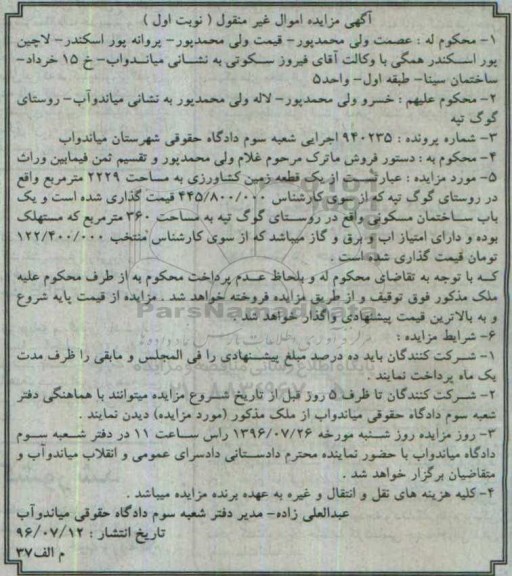 آگهی مزایده اموال غیر منقول ( نوبت اول )
۱- محکوم له : عصمت ولی محمدپور- قیمت ولی محمدپور- پروانه پور اسکندر- لاچین
پور اسکندر همگی با وکالت آقای فیروز سکوتی به نشانی میاندواب- خ ۱۵ خرداد-
ساختمان سینا- طبقه اول- واحد۵
۲- محکوم علیهم : خسرو ولی محمدپور- لاله ولی محمدپور به نشانی میاندوآب- روستای
گوگ تپه
۳- شماره پرونده : ۹۴۰۲۳۵ اجرایی شعبه سوم دادگاه حقوقی شهرستان میاندواب
۴- محکوم به : دستور فروش ماترک مرحوم غلام ولی محمدپور و تقسیم ثمن فیمابین وراث
۵- مورد مزایده : عبارتست از یک قطعه زمین کشاورزی به مساحت ۲۲۲۹ مترمربع واقع
در روستای گوگ تپه که از سوی کارشناس ۴۴۵/۸۰۰/۰۰۰ قیمت گذاری شده است و یک
باب ساختمان مسکونی واقع در روستای گوگ تپه به مساحت ۳۶۰ مترمربع که مستهلک
بوده و دارای امتیاز اب و برق و گاز میباشد که از سوی کارشناس منتخب ۱۲۲/۴۰۰/۰۰۰
تومان قیمت گذاری شده است .
کـه با توجه به تقاضای محکوم له و بلحاظ عدم پرداخت محکوم به از طرف محکوم علیه
ملک مذکور فوق توقیف و از طریق مزایده فروخته خواهد شد . مزایده از قیمت پایه شروع
و به بالاترین قیمت پیشنهادی واگذار خواهد شد .
ParsNamadData
۶- شرایط مزایده :
۱- شرکت کنندگان باید ده درصد مبلغ پیشنهادی را فی المجلس و مابقی را ظرف مدت
یک ماه پرداخت نمایند .
۲- شرکت کنندگان تا ظرف ۵ روز قبل از تاریخ شروع مزایده میتوانند با هماهنگی دفتر
شعبه سوم دادگاه حقوقی میاندواب از ملک مذکور (مورد مزایده) دیدن نمایند .
۳- روز مزایده روز شنبه مورخه ۱۳۹۶/۰۷/۲۶ راس ساعت ۱۱ در دفتر شعبه سوم
دادگاه میاندواب با حضور نماینده محترم دادستانی دادسرای عمومی و انقلاب میاندوآب و
متقاضیان برگزار خواهد شد .
۴- کلیه هزینه های نقل و انتقال و غیره به عهده برنده مزایده میباشد .
عبدالعلی زاده- مدیر دفتر شعبه سوم دادگاه حقوقی میاندوآب
تاریخ انتشار : ۹۶/۰۷/۱۲
م الف۳۷